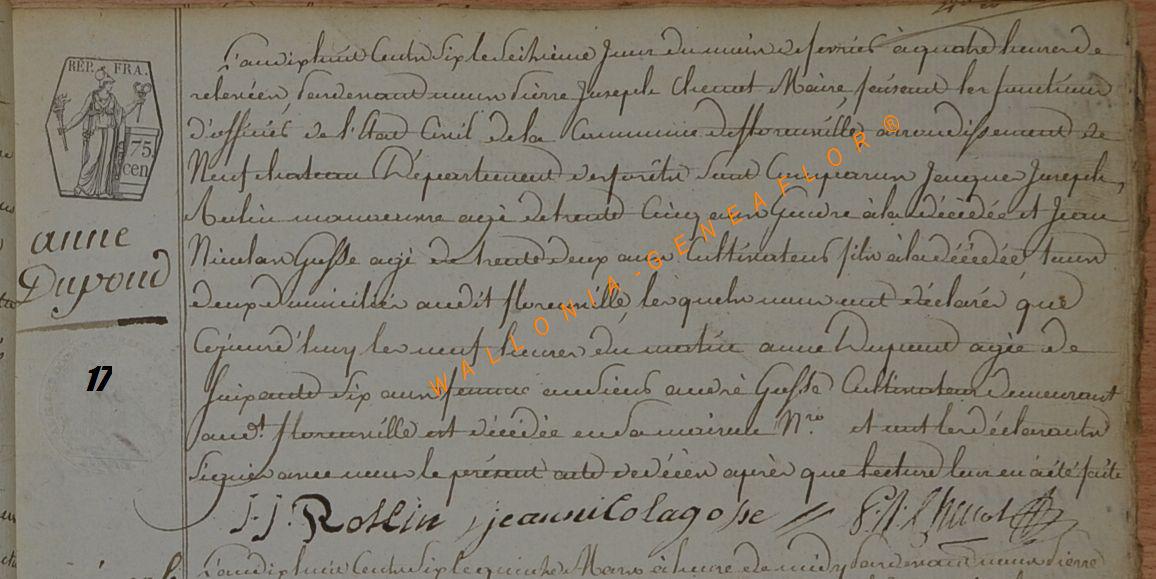 REP. FRA.
75
cen
anne
Dupond
17
L'an dix huit Cent Six le Seizieme Jour du mois de fevrier à quatre heures de
relevéen, pardevant nous Pierre Joseph Chenot Maire, faisant les fonctions
d'officiés de l'Etat Civil de la Commune de florenville, arrondissement de
Neufchateau Département des forêts Sont Comparus Jacque Joseph
Rollin manoeuvre agé de trente Cinq ans Gendre à la décédée et Jean
Nicolas Gosse agé de trente deux ans Cultivateur fils à la décédée, tous
deux domiciliés audit florenville, lesquels nous ont déclaré que
Cejourd'huy les neuf heures du matin anne Dupond agée de
Soixante Six ans femme au Sieur andré Gosse Cultivateur demeurant
aud.t florenville est décédée en Sa maison N.ro et ont les déclarants
Signés avec nous le présent acte de décés après que lecture leur en a été faite
J. J. Rollin jean nicola gosse P. J. Chenot
L'an dix huit Cent Six le quinze Mars à heure de midy pardevant nous Pierre
WALLONIA-GENEAFLOR ®